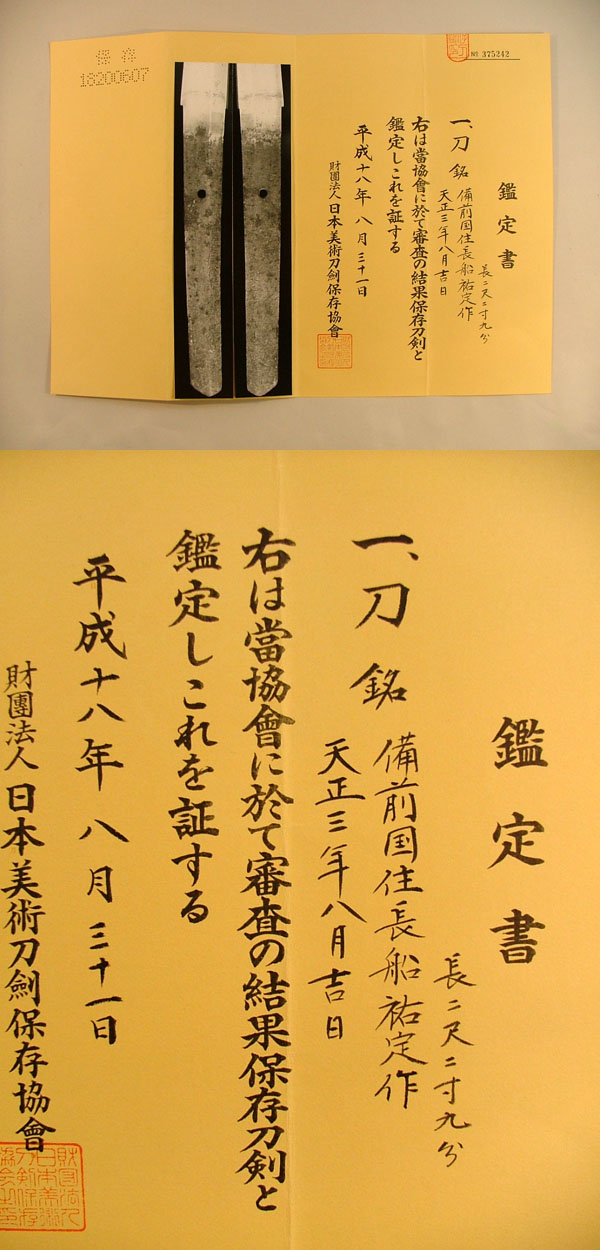 保存
18200607
No 375242
鑑定書
長二尺二寸九分
一、刀 銘 備前国住長船祐定作
天正三年八月吉日
右は當協會に於て審査の結果保存刀剣と
鑑定しこれを証する
平成十八年 八月 三十一日
財團法人 日本美術刀劍保存協會
鑑定書
長二尺二寸九分
一、刀 銘 備前国住長船祐定作
天正三年八月吉日
右は當協會に於て審査の結果保存刀剣と
鑑定しこれを証する
平成十八年 八月 三十一日
財團法人 日本美術刀劍保存協會